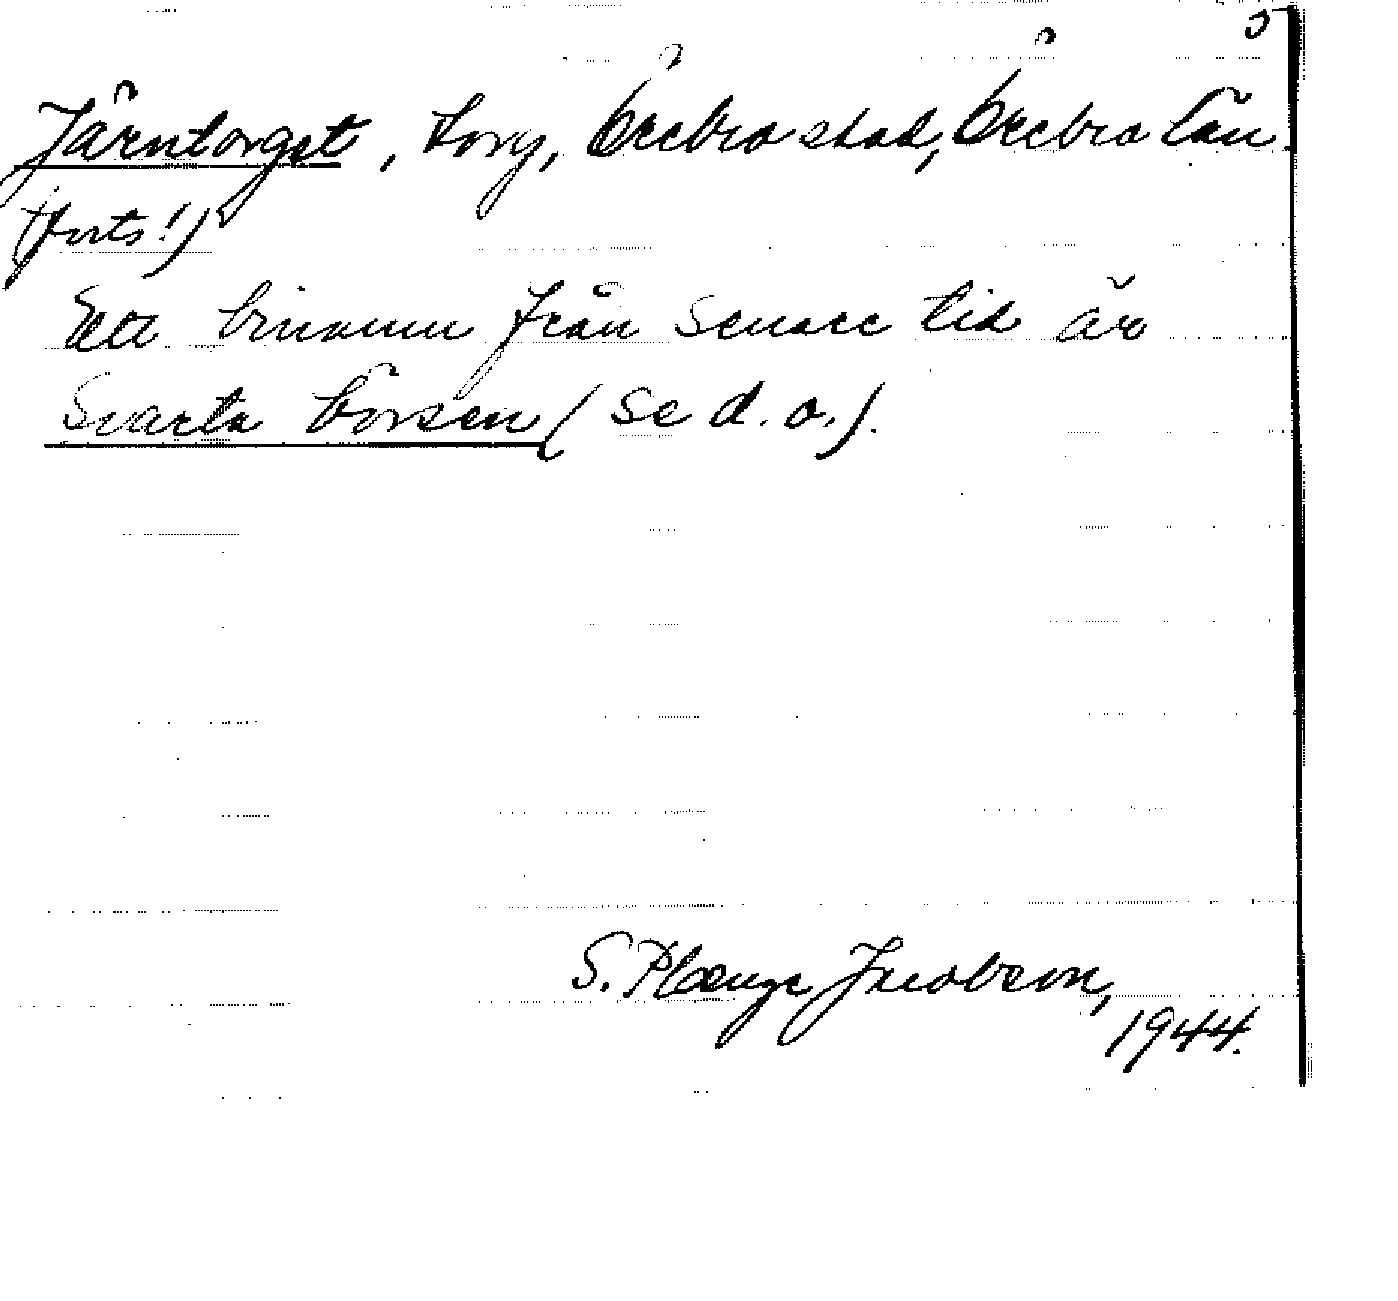 Järntorget, torg, Örebro stad, Örebro län
(forts!)
Ett binamn från senare tid är
Svarta börsen (se d.o.).
S. Plænge Jacobson,
1944.